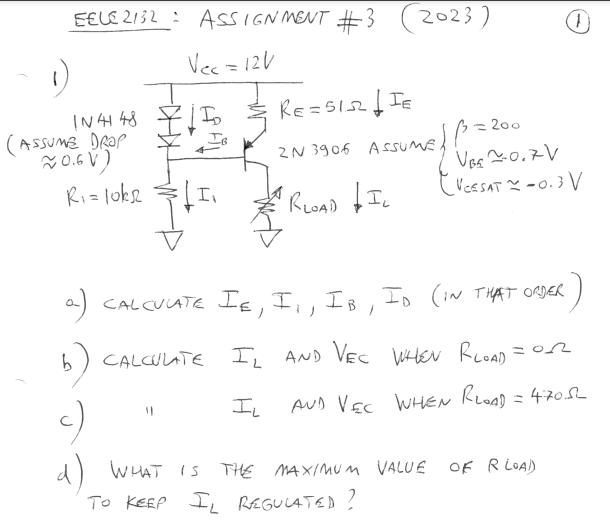 EELE2132 : ASSIGNMENT #3 (2023)
1
1)
Vcc = 12V
1N4148
(ASSUME DROP
≈ 0.6V)
ID
RE = 51Ω
IE
IB
2N3906 ASSUME
β = 200
VBE ≈ -0.7V
VCESAT ≈ -0.3V
R1 = 10kΩ
I1
RLOAD
IL
a) CALCULATE IE, I1, IB, ID (IN THAT ORDER)
b) CALCULATE IL AND VEC WHEN RLOAD = 0Ω
c) " IL AND VEC WHEN RLOAD = 470Ω
d) WHAT IS THE MAXIMUM VALUE OF RLOAD
TO KEEP IL REGULATED?